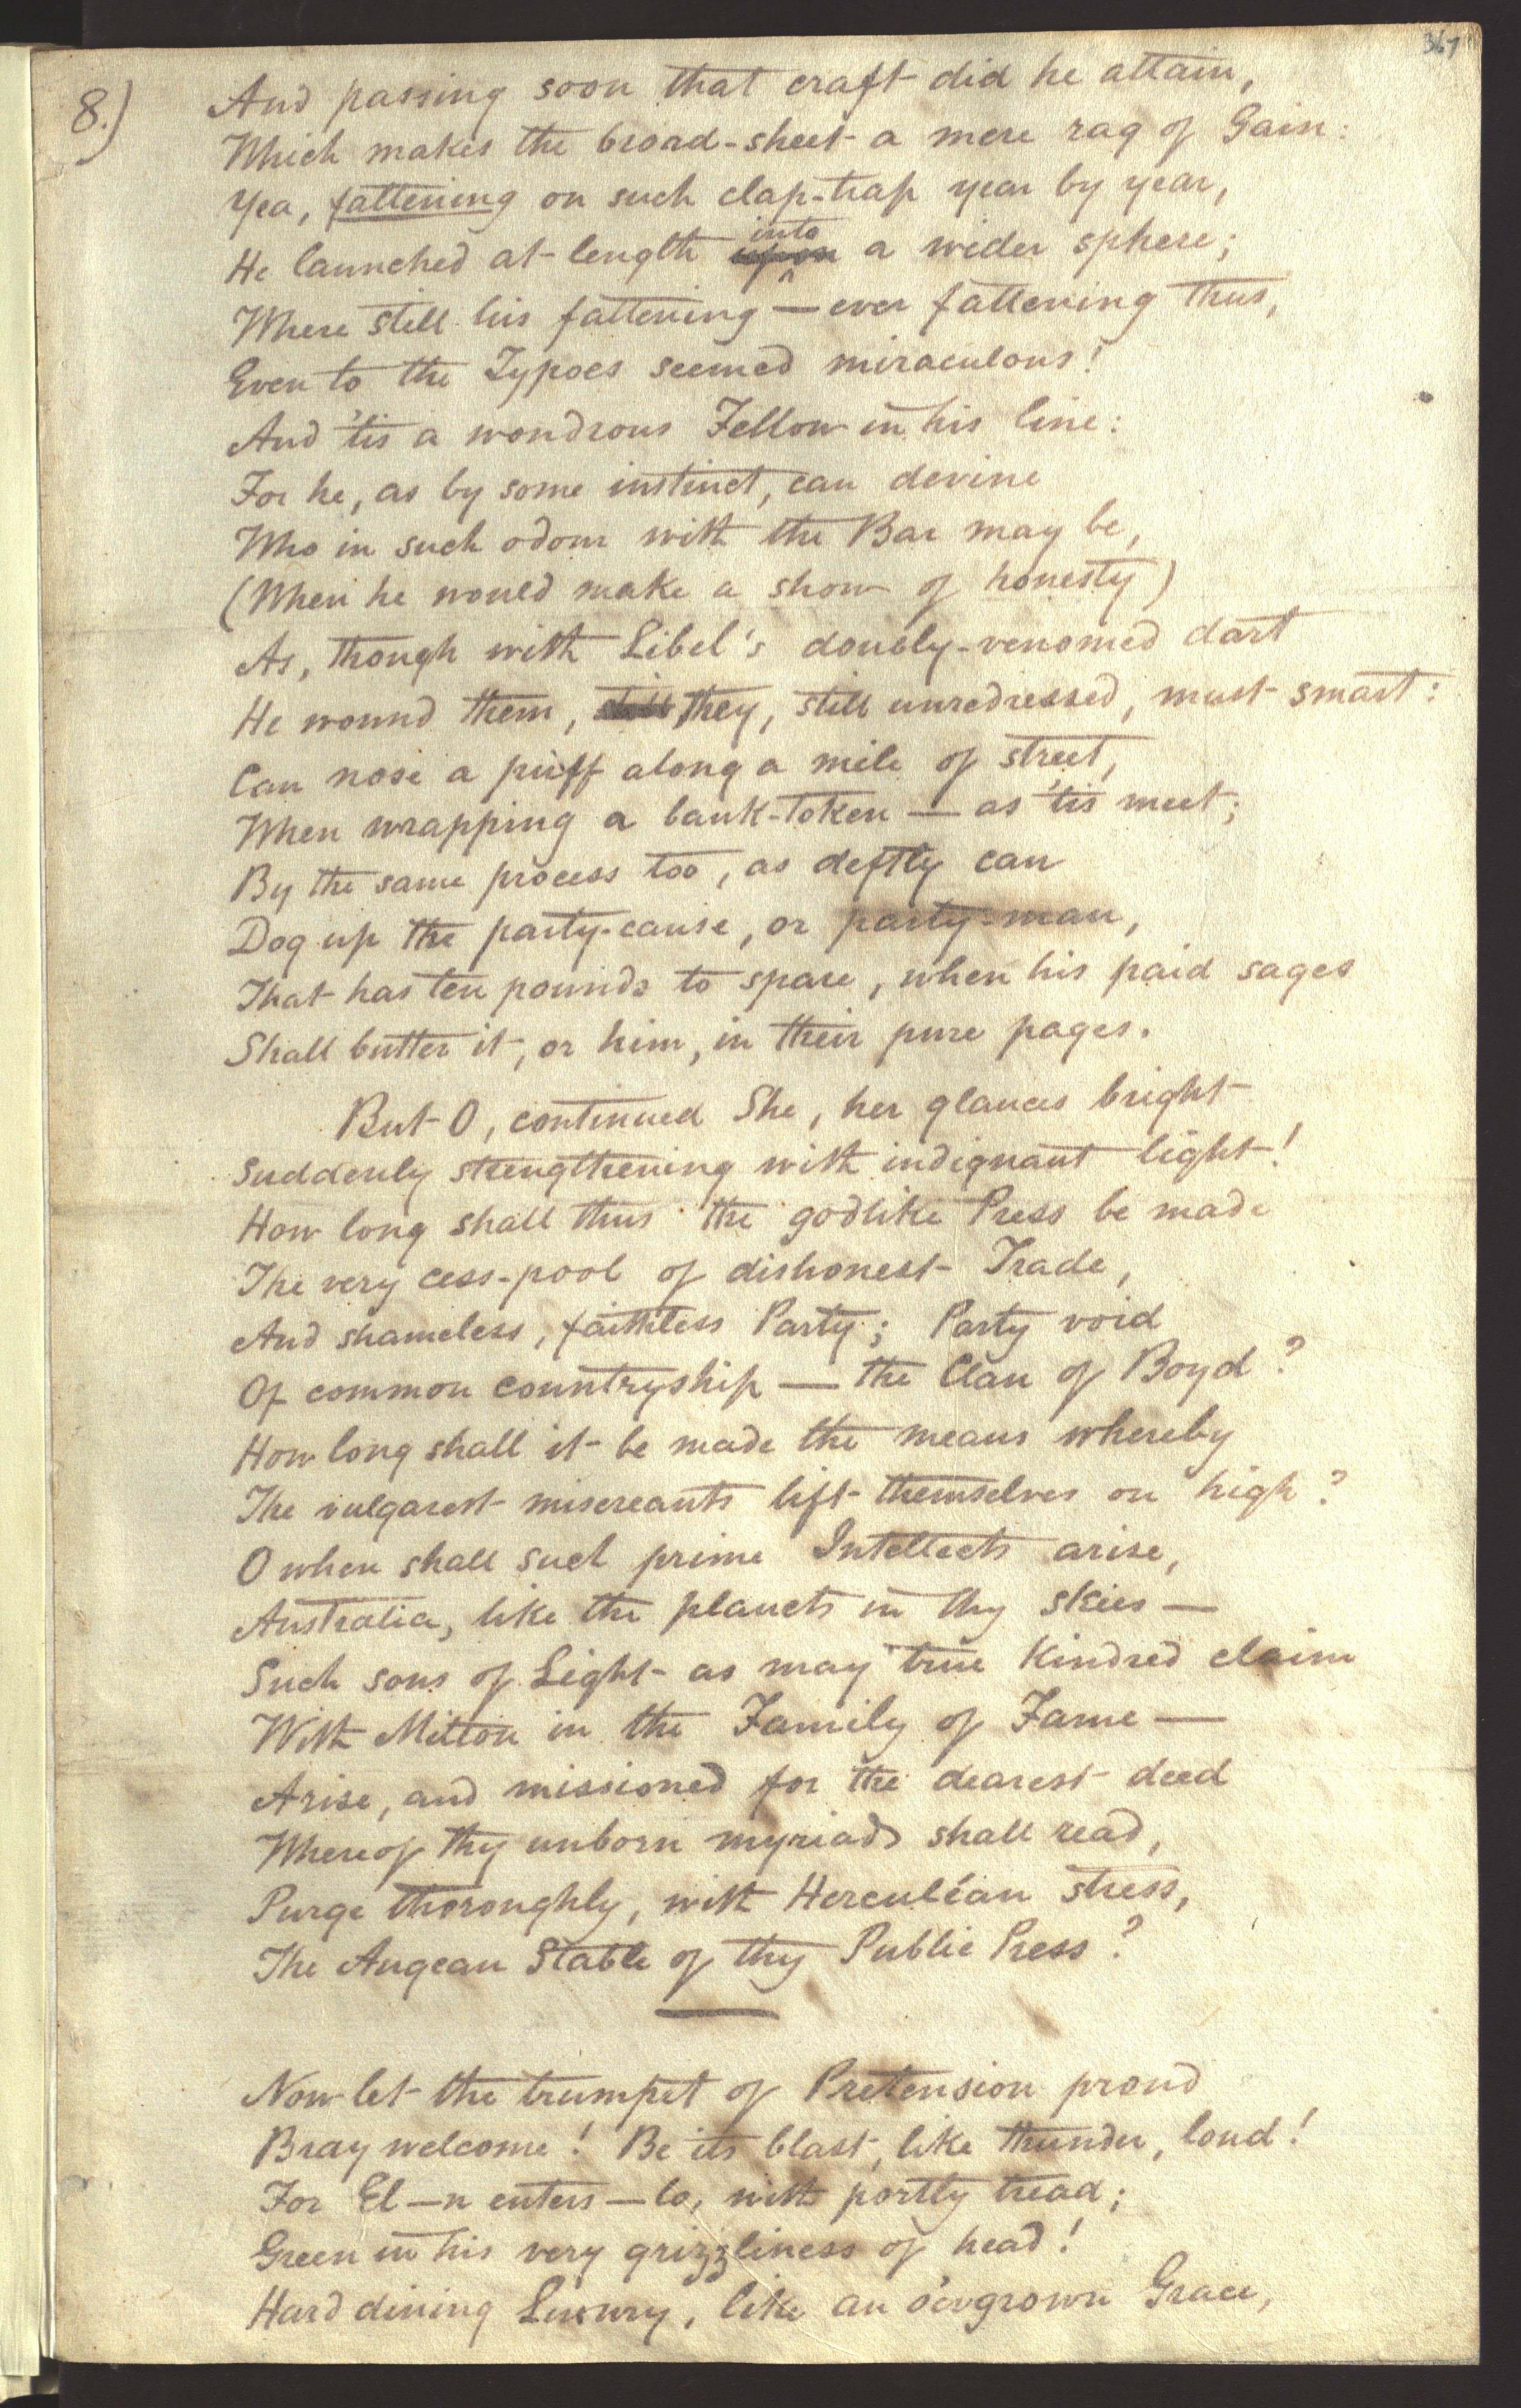 367
8.)
And passing soon that craft did he attain,
Which makes the broad-sheet a mere rag of Gain:
Yea, fattening on such clap-trap year by year,
He launched at length upon into a wider sphere;
Where still his fattening — ever fattening thus,
Even to the Typoes seemed miraculous!
And 'tis a wondrous Fellow in his line:
For he, as by some instinct, can devine
Who in such odour with the Bar may be,
(When he would make a show of honesty)
As, though with Libel's doubly-venomed dart
He wound them, still they, still unredressed, must smart:
Can nose a puff along a mile of street,
When wrapping a bank-token — as 'tis meet;
By the same process too, as deftly can
Dog up the party-cause, or party-man,
That has ten pounds to spare, when his paid sages
Shall butter it, or him, in their pure pages.
But O, continued She, her glances bright
Suddenly strengthening with indignant light!
How long shall thus the godlike Press be made
The very cess-pool of dishonest Trade,
And shameless, faithless Party; Party void
Of common countryship — the Clan of Boyd?
How long shall it be made the means whereby
The vulgarest miscreants lift themselves on high?
O when shall such prime Intellects arise,
Australia, like the planets in thy skies —
Such sons of Light as may true Kindred claim
With Milton in the Family of Fame —
Arise, and missioned for the dearest deed
Whereof thy unborn myriads shall read,
Purge thoroughly, with Herculéan stress,
The Augean Stable of thy Public Press?
Now let the trumpet of Pretension proud
Bray welcome! Be its blast, like thunder, loud!
For El—n enters — lo, with portly tread;
Green in his very grizzliness of head!
Hard dining Luxury, like an o'ergrown Grace,